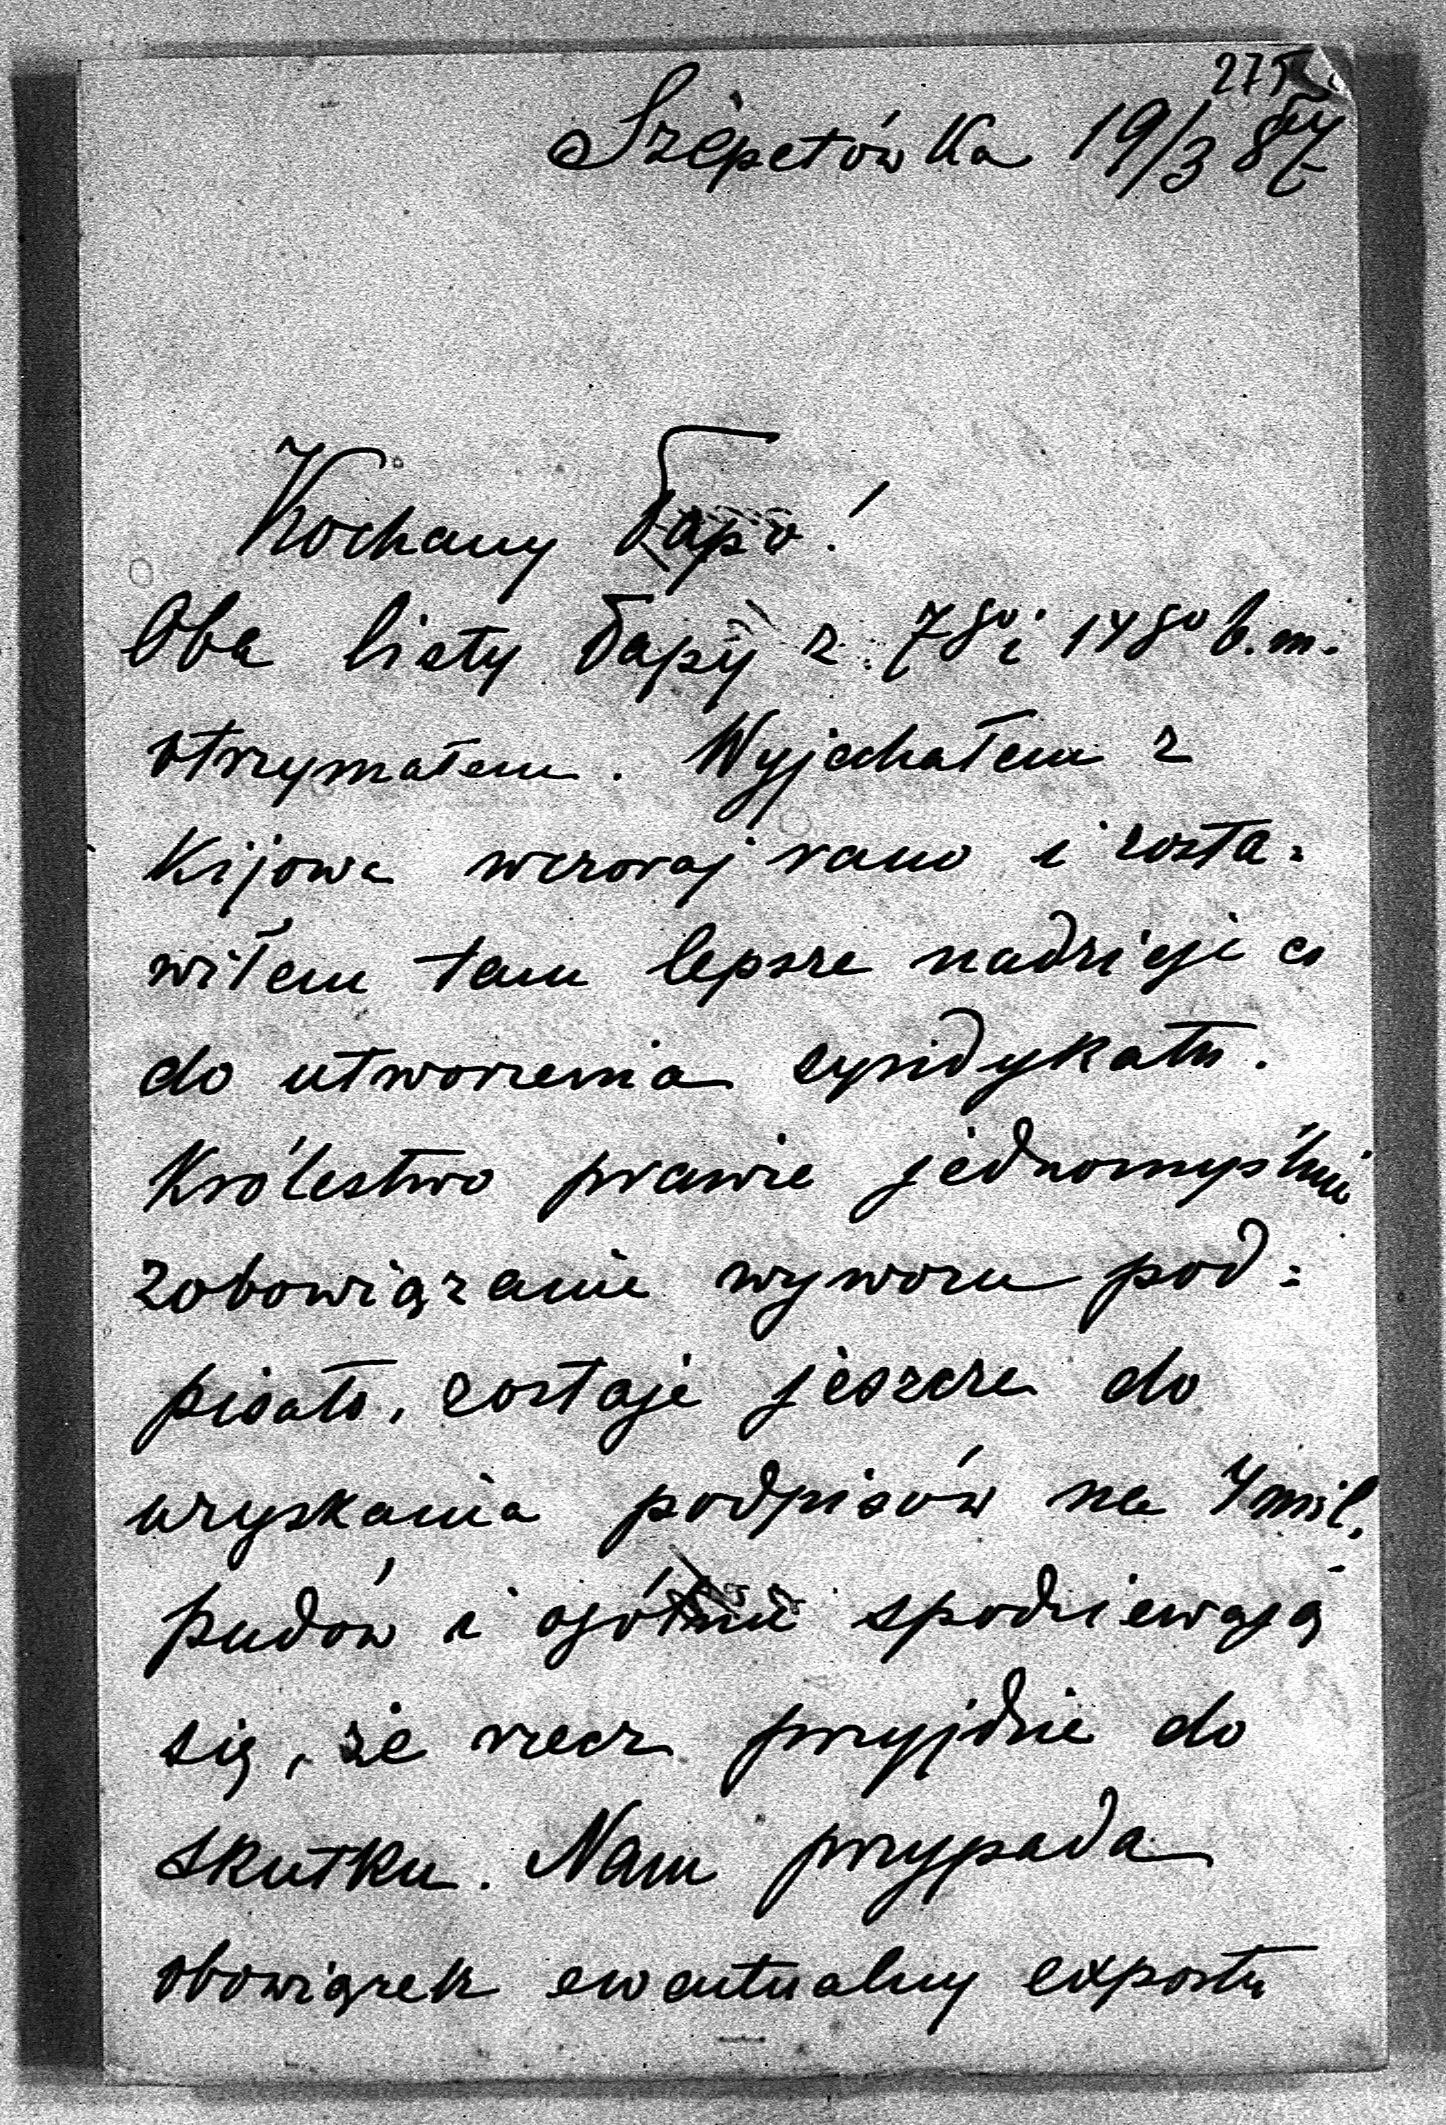 275
Szepetówka 19/3 87
Kochany Papo!
Oba listy Papy z 7go i 14go b.m.
otrzymałem. Wyjechałem z
Kijowa wczoraj rano i zosta=
wiłem tam lepsze nadzieje co
do utworzenia syndykatu.
Królestwo prawie jednomyślnie
zobowiązanie wywozu pod=
pisało, zostaje jeszcze do
uzyskania podpisów na 4 mil.
pudów i ogólnie spodziewają
się, że rzecz przyjdzie do
skutku. Nam przypada
obowiązek ewentualny exportu